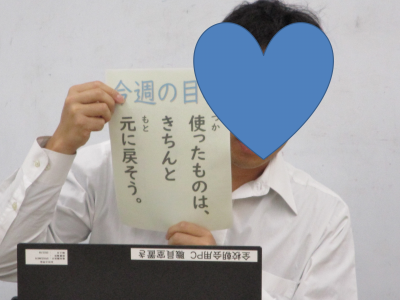 今週の目
使ったものは、
つか
きちんと
元に戻そう。
もと
全校朝会用PC 職員室置き